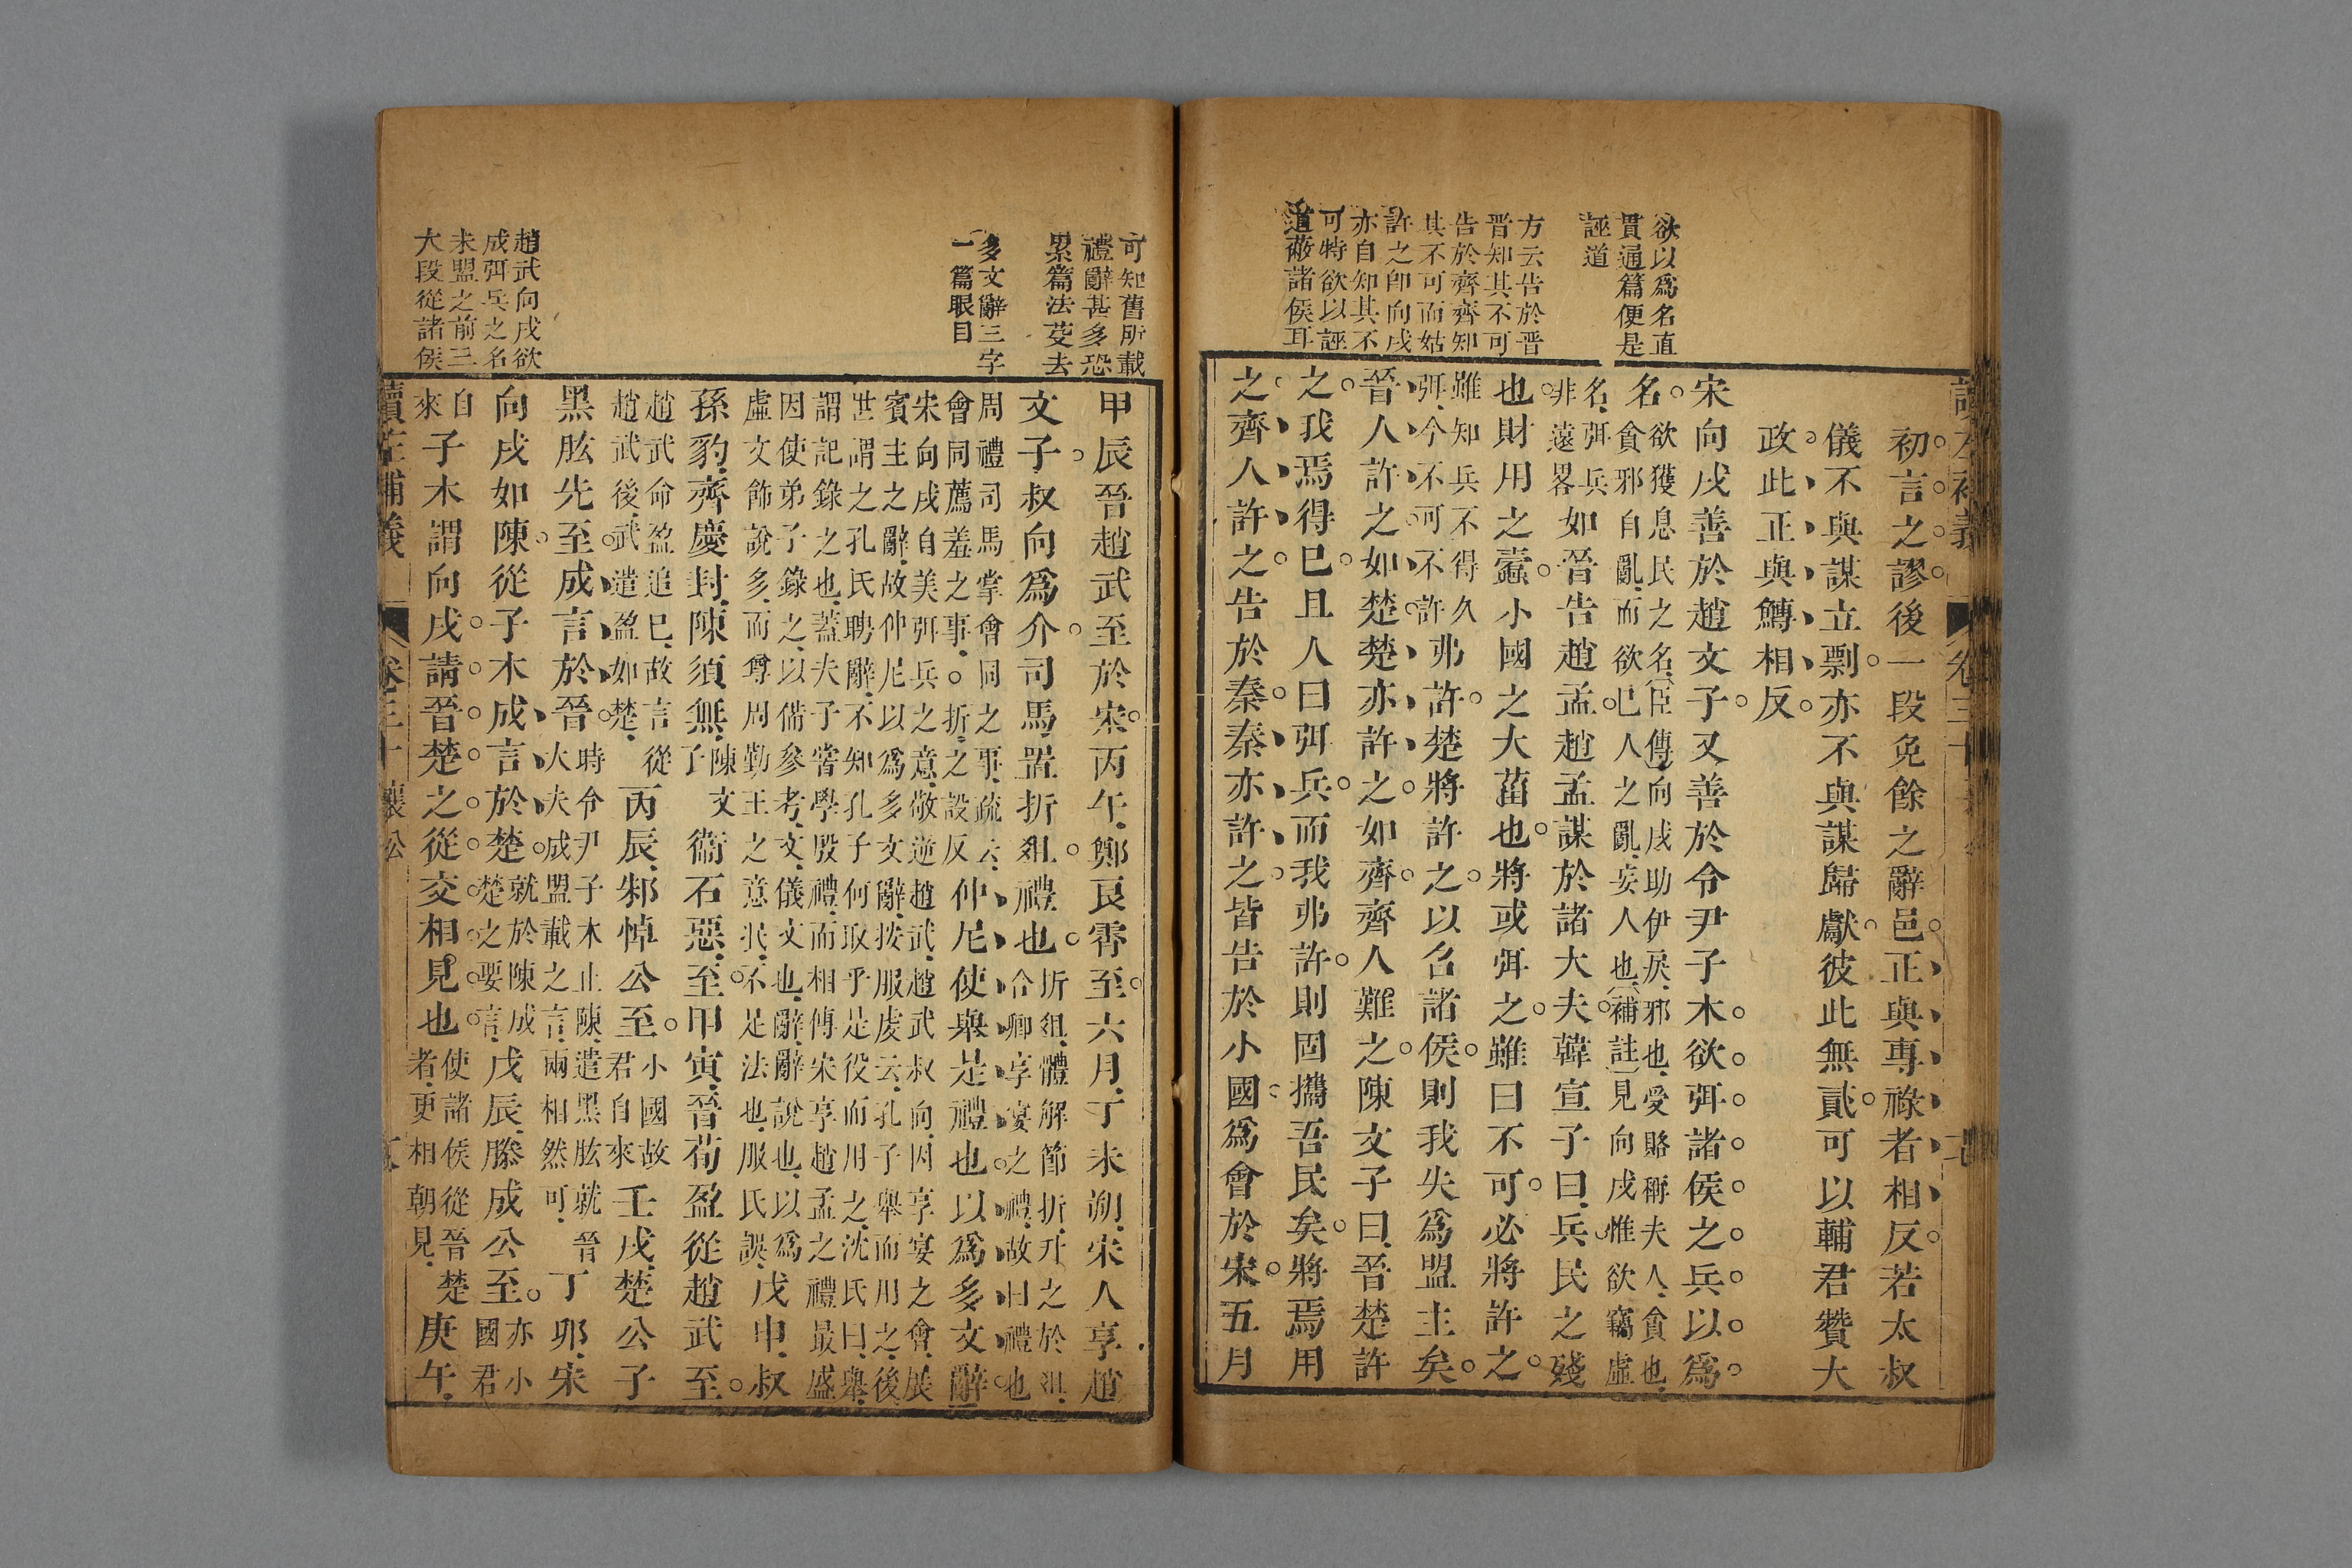 欲以爲名直
貫通篇便是
誣道
方云告於晋
晋知其不可
告於齊齊知
其不可而姑
許之卽向戌
亦自知其不
可特欲以誣
道蔽諸侯耳
初言之謬後一段免餘之辭邑正與專祿者相反若太叔
儀不與謀立剽亦不與謀歸獻彼此無貳可以輔君贊大
政此正與鱄相反
宋向戌善於趙文子又善於令尹子木欲弭諸侯之兵以爲
名欲獲息民之名臣傳向戌助伊戾邪也受賂稱夫人貪也
貪邪自亂而欲已人之亂妄人也補註見向戌惟欲竊虛
名弭兵
非遠畧如晉告趙孟趙孟謀於諸大夫韓宣子曰兵民之殘
也財用之蠹小國之大菑也將或弭之雖曰不可必將許之
雖知兵不得久
弭今不可不許弗許楚將許之以召諸侯則我失爲盟主矣
晉人許之如楚楚亦許之如齊齊人難之陳文子曰晉楚許
之我焉得已且人曰弭兵而我弗許則固攜吾民矣將焉用
之齊人許之告於秦秦亦許之皆告於小國爲會於宋五月
可知舊所載
禮辭甚多恐
累篇法芟去
多文辭三字
一篇眼目
趙武向戌欲
成弭兵之名
未盟之前三
大段從諸侯
甲辰晉趙武至於宋丙午鄭良霄至六月丁未朔宋人享趙
文子叔向爲介司馬置折俎禮也折俎體解節折升之於俎
合卿享宴之禮故曰禮也
周禮司馬掌會同之事疏云
會同薦羞之事。折之設反仲尼使舉是禮也以爲多文辭
宋向戌自美弭兵之意敬逆趙武趙武叔向因享宴之會展
賓主之辭故仲尼以爲多文辭按服虔云孔子舉而用之後
世謂之孔氏聘辭不知孔子何取乎是役而用之沈氏曰舉
謂記錄之也蓋夫子嘗學殷禮而相傳宋享趙孟之禮最盛
因使弟子錄之以備參考文儀文也辭辭說也以爲
虛文飾說多而尊周勤王之意泯不足法也服氏誤戊申叔
孫豹齊慶封陳須無陳文
子衞石惡至甲寅晉荀盈從趙武至
趙武命盈追已故言從
趙武後武遣盈如楚丙辰邾悼公至小國故
君自來壬戌楚公子
黑肱先至成言於晉時令尹子木止陳遣黑肱就晉
大夫成盟載之言兩相然可丁卯宋
向戌如陳從子木成言於楚就於陳成
楚之要言戊辰滕成公至亦小
國君
自
來子木謂向戌請晉楚之從交相見也使諸侯從晉楚
者更相朝見庚午
讀左補義
卷三十
襄公